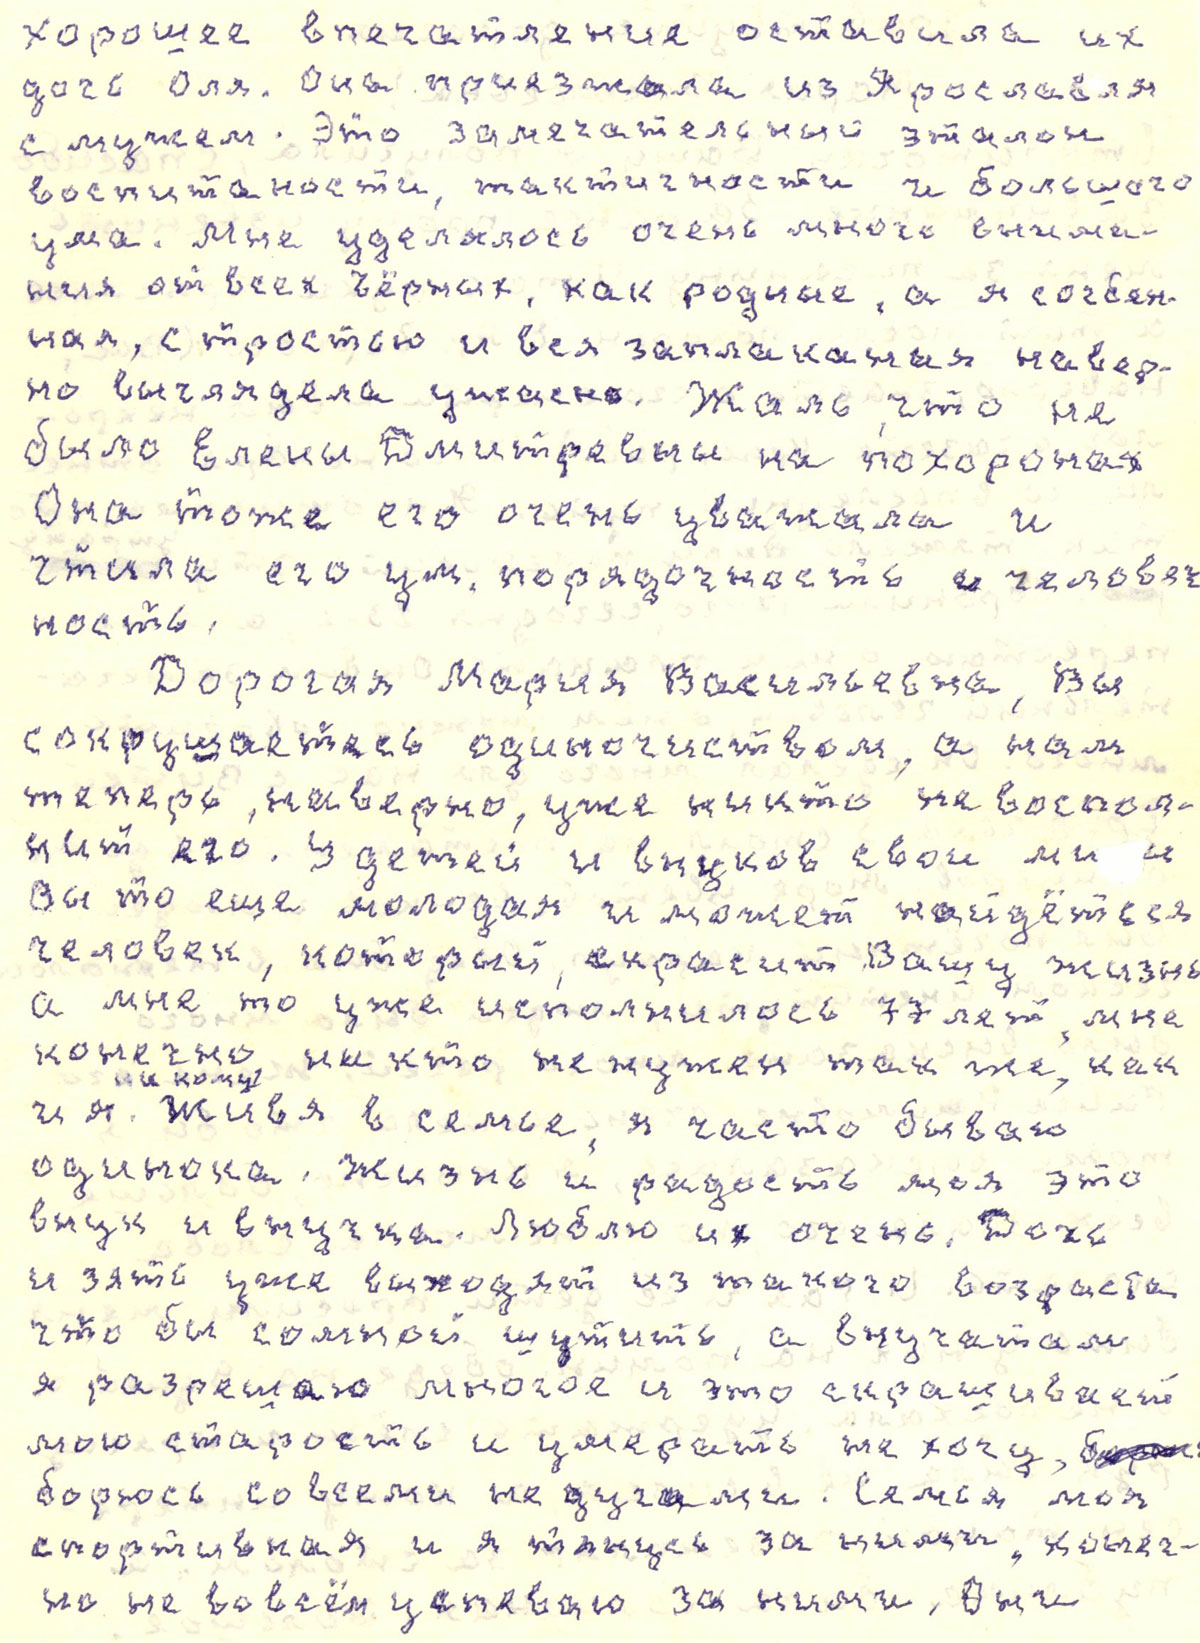 хорошее впечатление оставила их
дочь Оля. Она приезжала из Ярославля
с мужем. Это замечательный эталон
воспитаности, тактичности и большого
ума. Мне уделялось очень много внима-
ния от всех Чёрных, как родные, а я согбен-
ная, с тростью и вся заплаканая навер-
но выглядела ужасно. Жаль, что не
было Елены Дмитревны на похоронах
Она тоже его очень уважала и
чтила его ум, порядочность и человеч
ность.
Дорогая Мария Васильевна, Вы
сокрушаетесь одиночиством, а нам
теперь, наверно, уже никто не воспол-
нит его. У детей и внуков свои
Вы то еще молодая и может найдётся
человек, который, скрасит Вашу жизнь
а мне то уже исполнилось 77 лет, мне
конечно никто не нужен так же, как
ни кому
и я. Живя в семье, я часто бываю
одинока. Жизнь и радость моя это
внук и внучка. Люблю их очень. Дочь
и зять уже выходят из такого возраста
что бы сомной шутить, а внучатам
я разрешаю многое и это скрашивает
мою старость и умерать не хочу,
борюсь со всеми недугами. Семья моя
спортивная и я тянусь за ними, конеч-
но не во всём успеваю за ними, Они